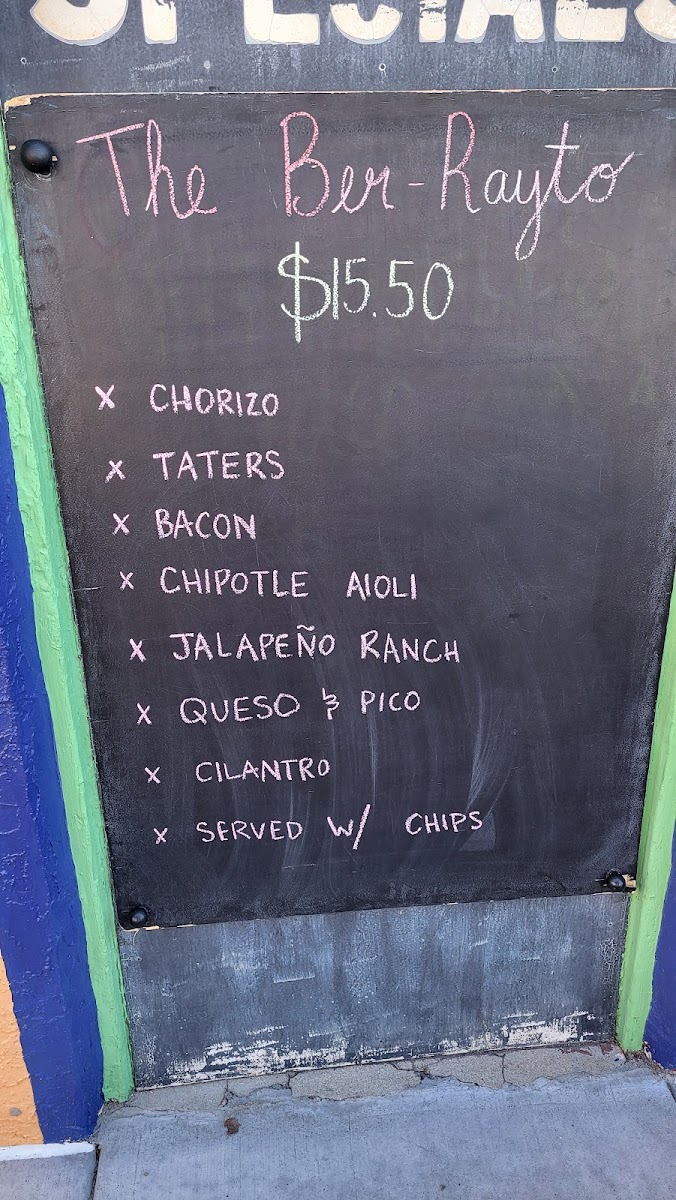 SPECIALS
The Ber-Rayto
$15.50
x CHORIZO
x TATERS
x BACON
x CHIPOTLE AIOLI
x JALAPEÑO RANCH
x QUESO & PICO
x CILANTRO
x SERVED W/ CHIPS